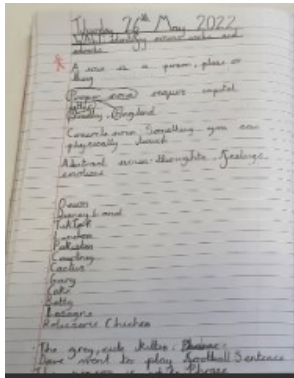 Thursday 26th May 2022
WALT: Identify nouns verbs and
adverbs
A noun is a person, place or
thing
Proper noun require capital
letter
England
Concrete noun: Something you can
physically touch
Abstract noun: thoughts, feelings
emotions
Queen
TikTok
London
Pakistan
Courtney
Cactus
Gary
Cake
Betty
Lasagne
Rotisserie Chicken
The grey, cute kitten.
Dave went to play football Sentence
Phrase